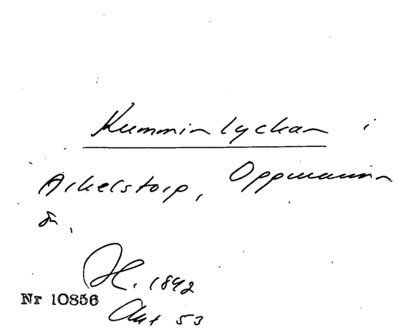 Kumminlyckan i
Arkelstorp, Oppmanna
sn.
H. 1892
Nr 10856
Akt 53